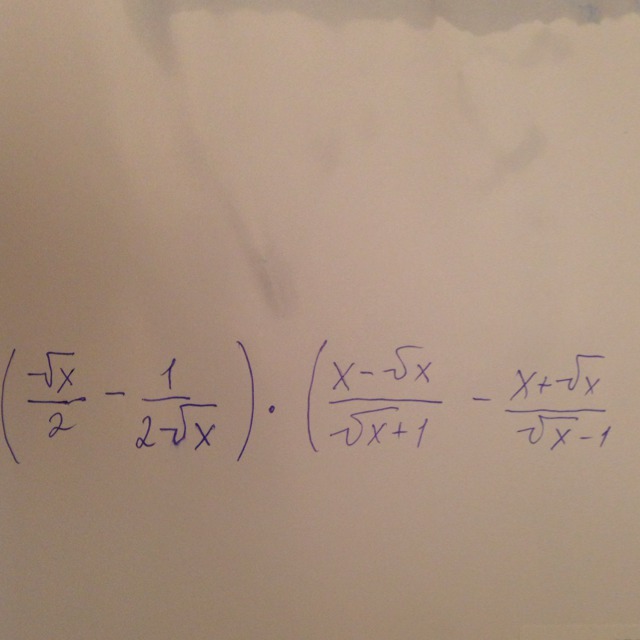 (√x/2 - 1/2√x) · (x-√x/√x+1 - x+√x/√x-1